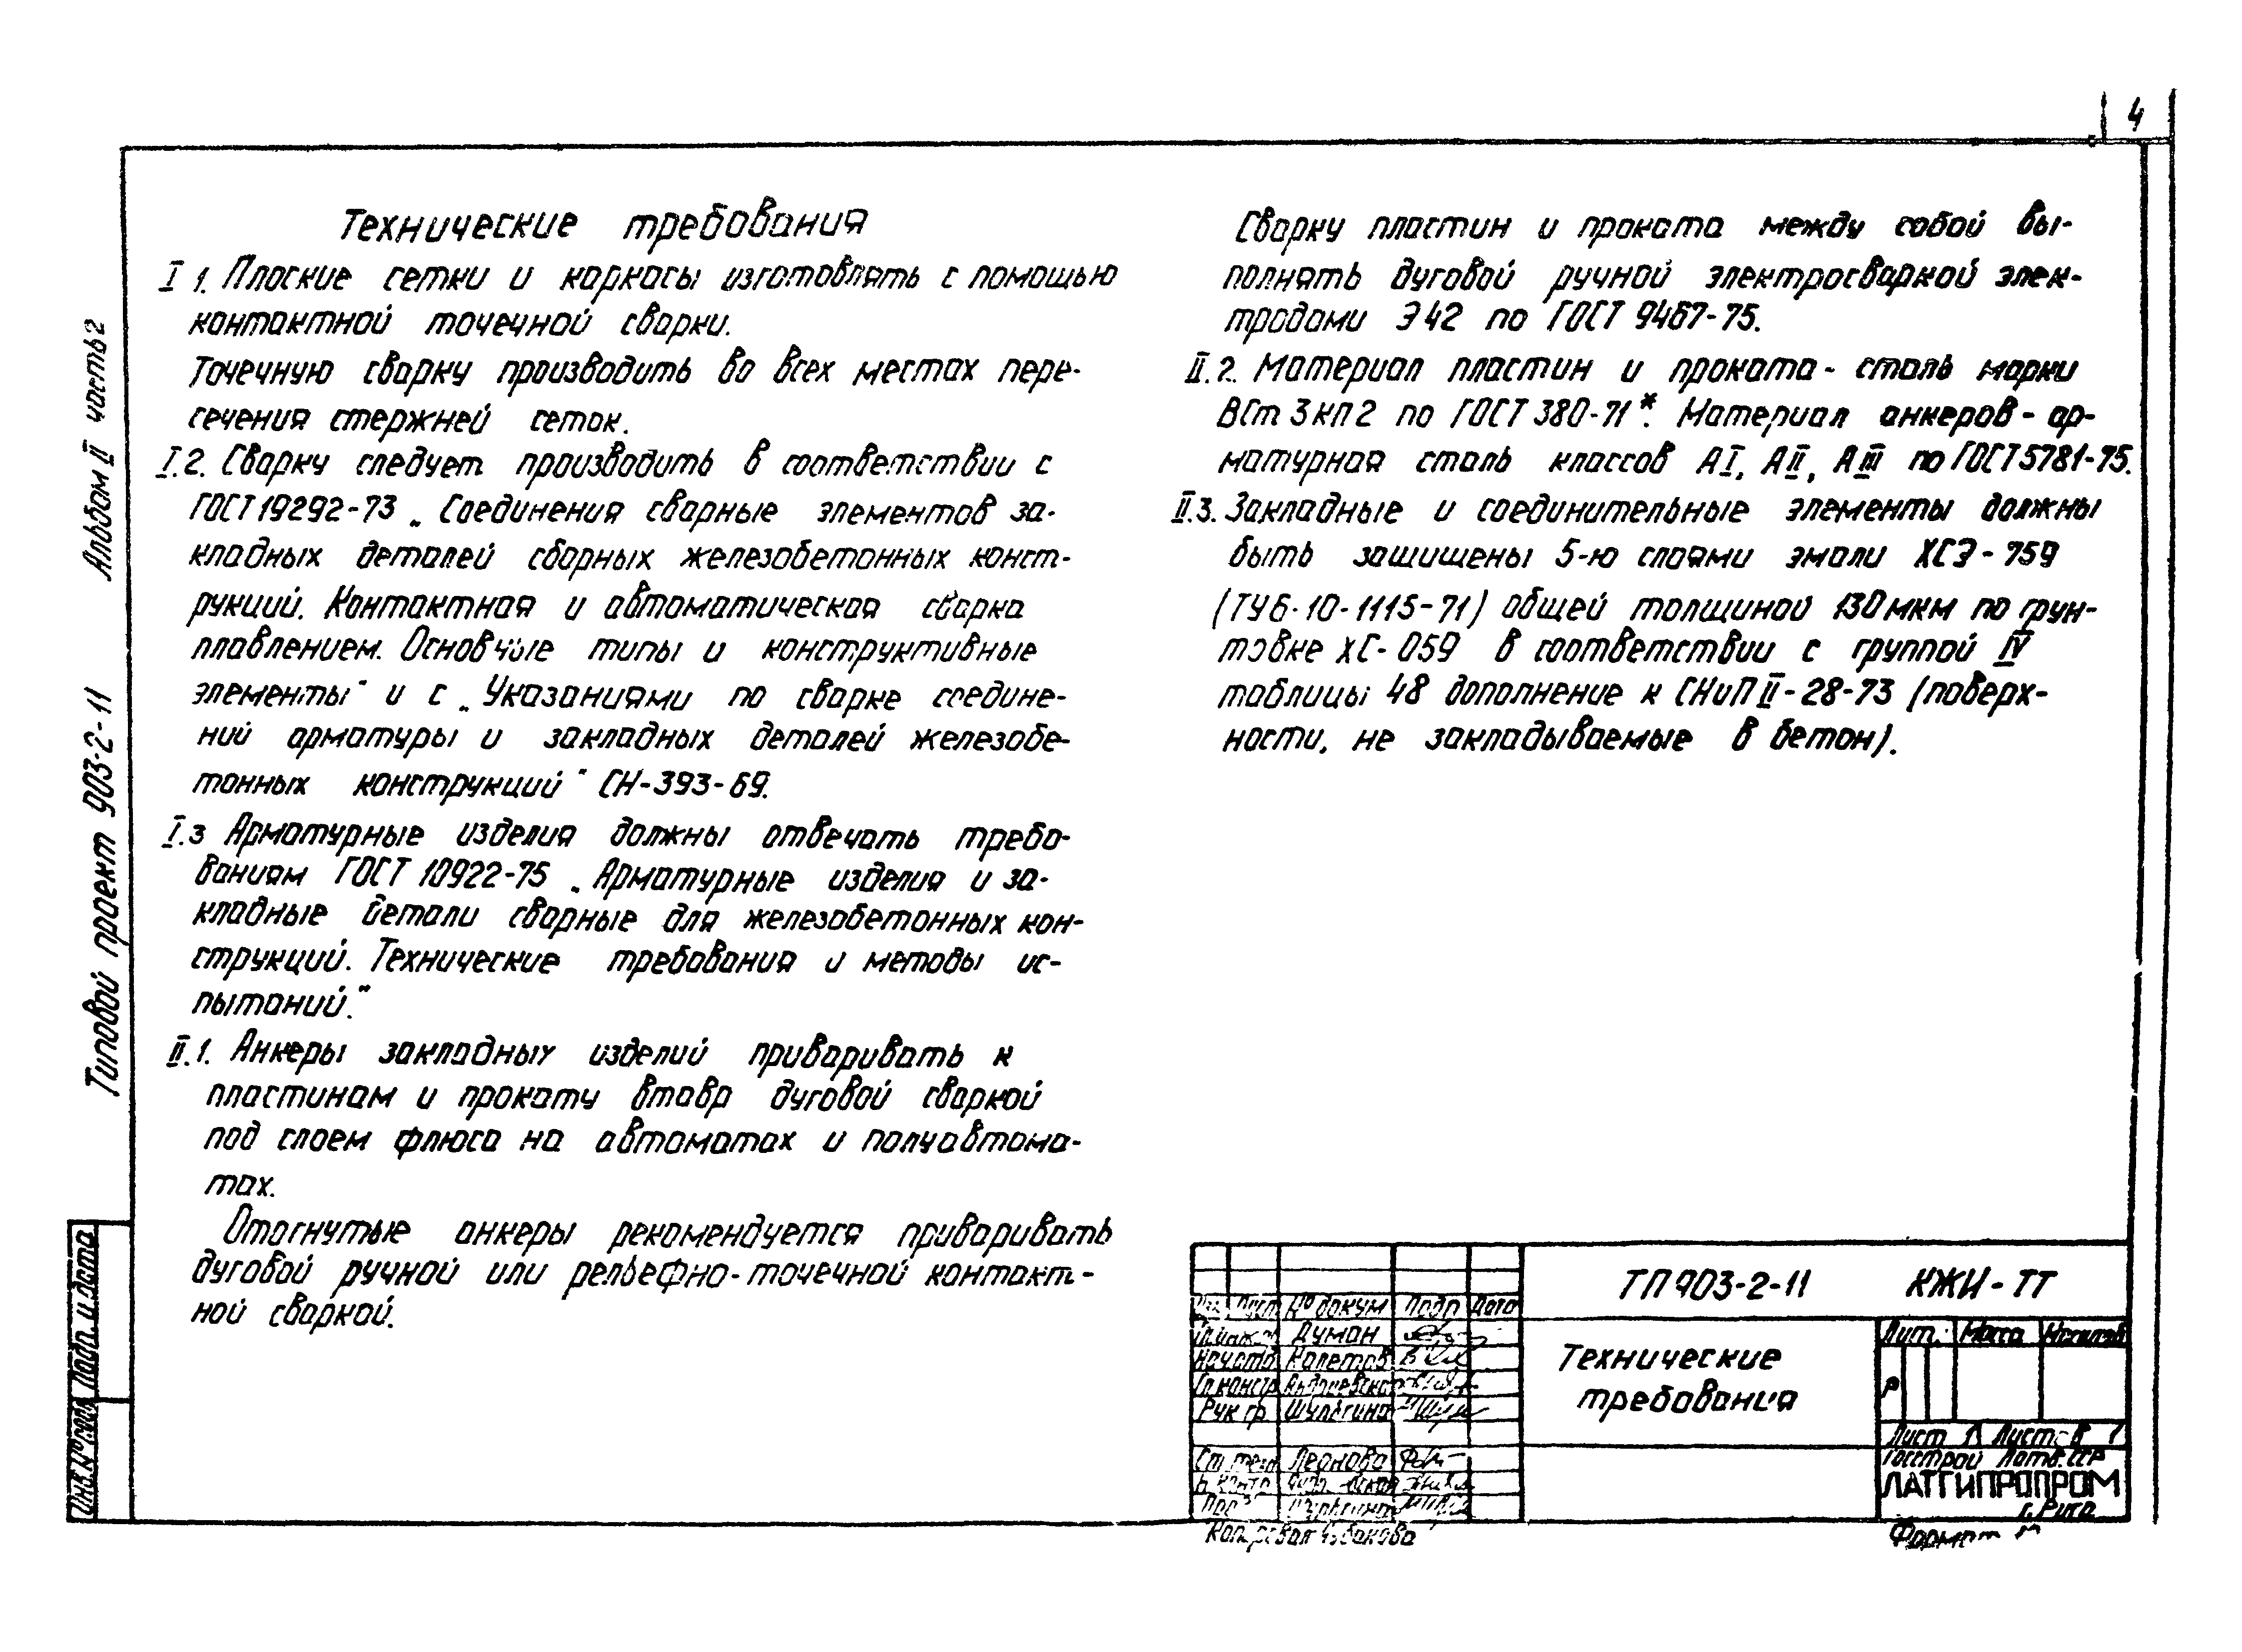 4
Технические требования
I 1. Плоские сетки и каркасы изготовлять с помощью
контактной точечной сварки.
Точечную сварку производить во всех местах пере-
сечения стержней сеток.
I.2. Сварку следует производить в соответствии с
ГОСТ 19292-73 „Соединения сварные элементов за-
кладных деталей сборных железобетонных конст-
рукций. Контактная и автоматическая сварка
плавлением. Основные типы и конструктивные
элементы" и с „Указаниями по сварке соедине-
ний арматуры и закладных деталей железобе-
тонных конструкций" СН-393-69.
I.3 Арматурные изделия должны отвечать требо-
ваниям ГОСТ 10922-75 „Арматурные изделия и за-
кладные детали сварные для железобетонных кон-
струкций. Технические требования и методы ис-
пытаний."
II.1. Анкеры закладных изделий приваривать к
пластинам и прокату втавр дуговой сваркой
под слоем флюса на автоматах и полуавтома-
тах.
Отогнутые анкеры рекомендуется приваривать
дуговой ручной или рельефно-точечной контакт-
ной сваркой.
Сварку пластин и проката между собой вы-
полнять дуговой ручной электросваркой элек-
тродами Э42 по ГОСТ 9467-75.
II.2. Материал пластин и проката - сталь марки
ВСт 3 кп 2 по ГОСТ 380-71*. Материал анкеров - ар-
матурная сталь классов АI, АII, АIII по ГОСТ 5781-75.
II.3. Закладные и соединительные элементы должны
быть защищены 5-ю слоями эмали ХСЭ-759
(ТУ6-10-1115-71) общей толщиной 130 мкм по грун-
товке ХС-059 в соответствии с группой IV
таблицы 48 дополнение к СНиП II-28-73 (поверх-
ности, не закладываемые в бетон).
Типовой проект 903-2-11 Альбом II часть 2
Подп. и дата
Инв. №
ТП 903-2-11 КЖИ-ТТ
Лист № докум Подп Дата
Думан
Нач отд Калетов
Гл констр
Рук гр Шульгина
Леонова
Технические
требования
Лит. Масса
Р
Лист 1 Листов 1
Госстрой Латв.ССР
ЛАТГИПРОПРОМ
г. Рига
Формат